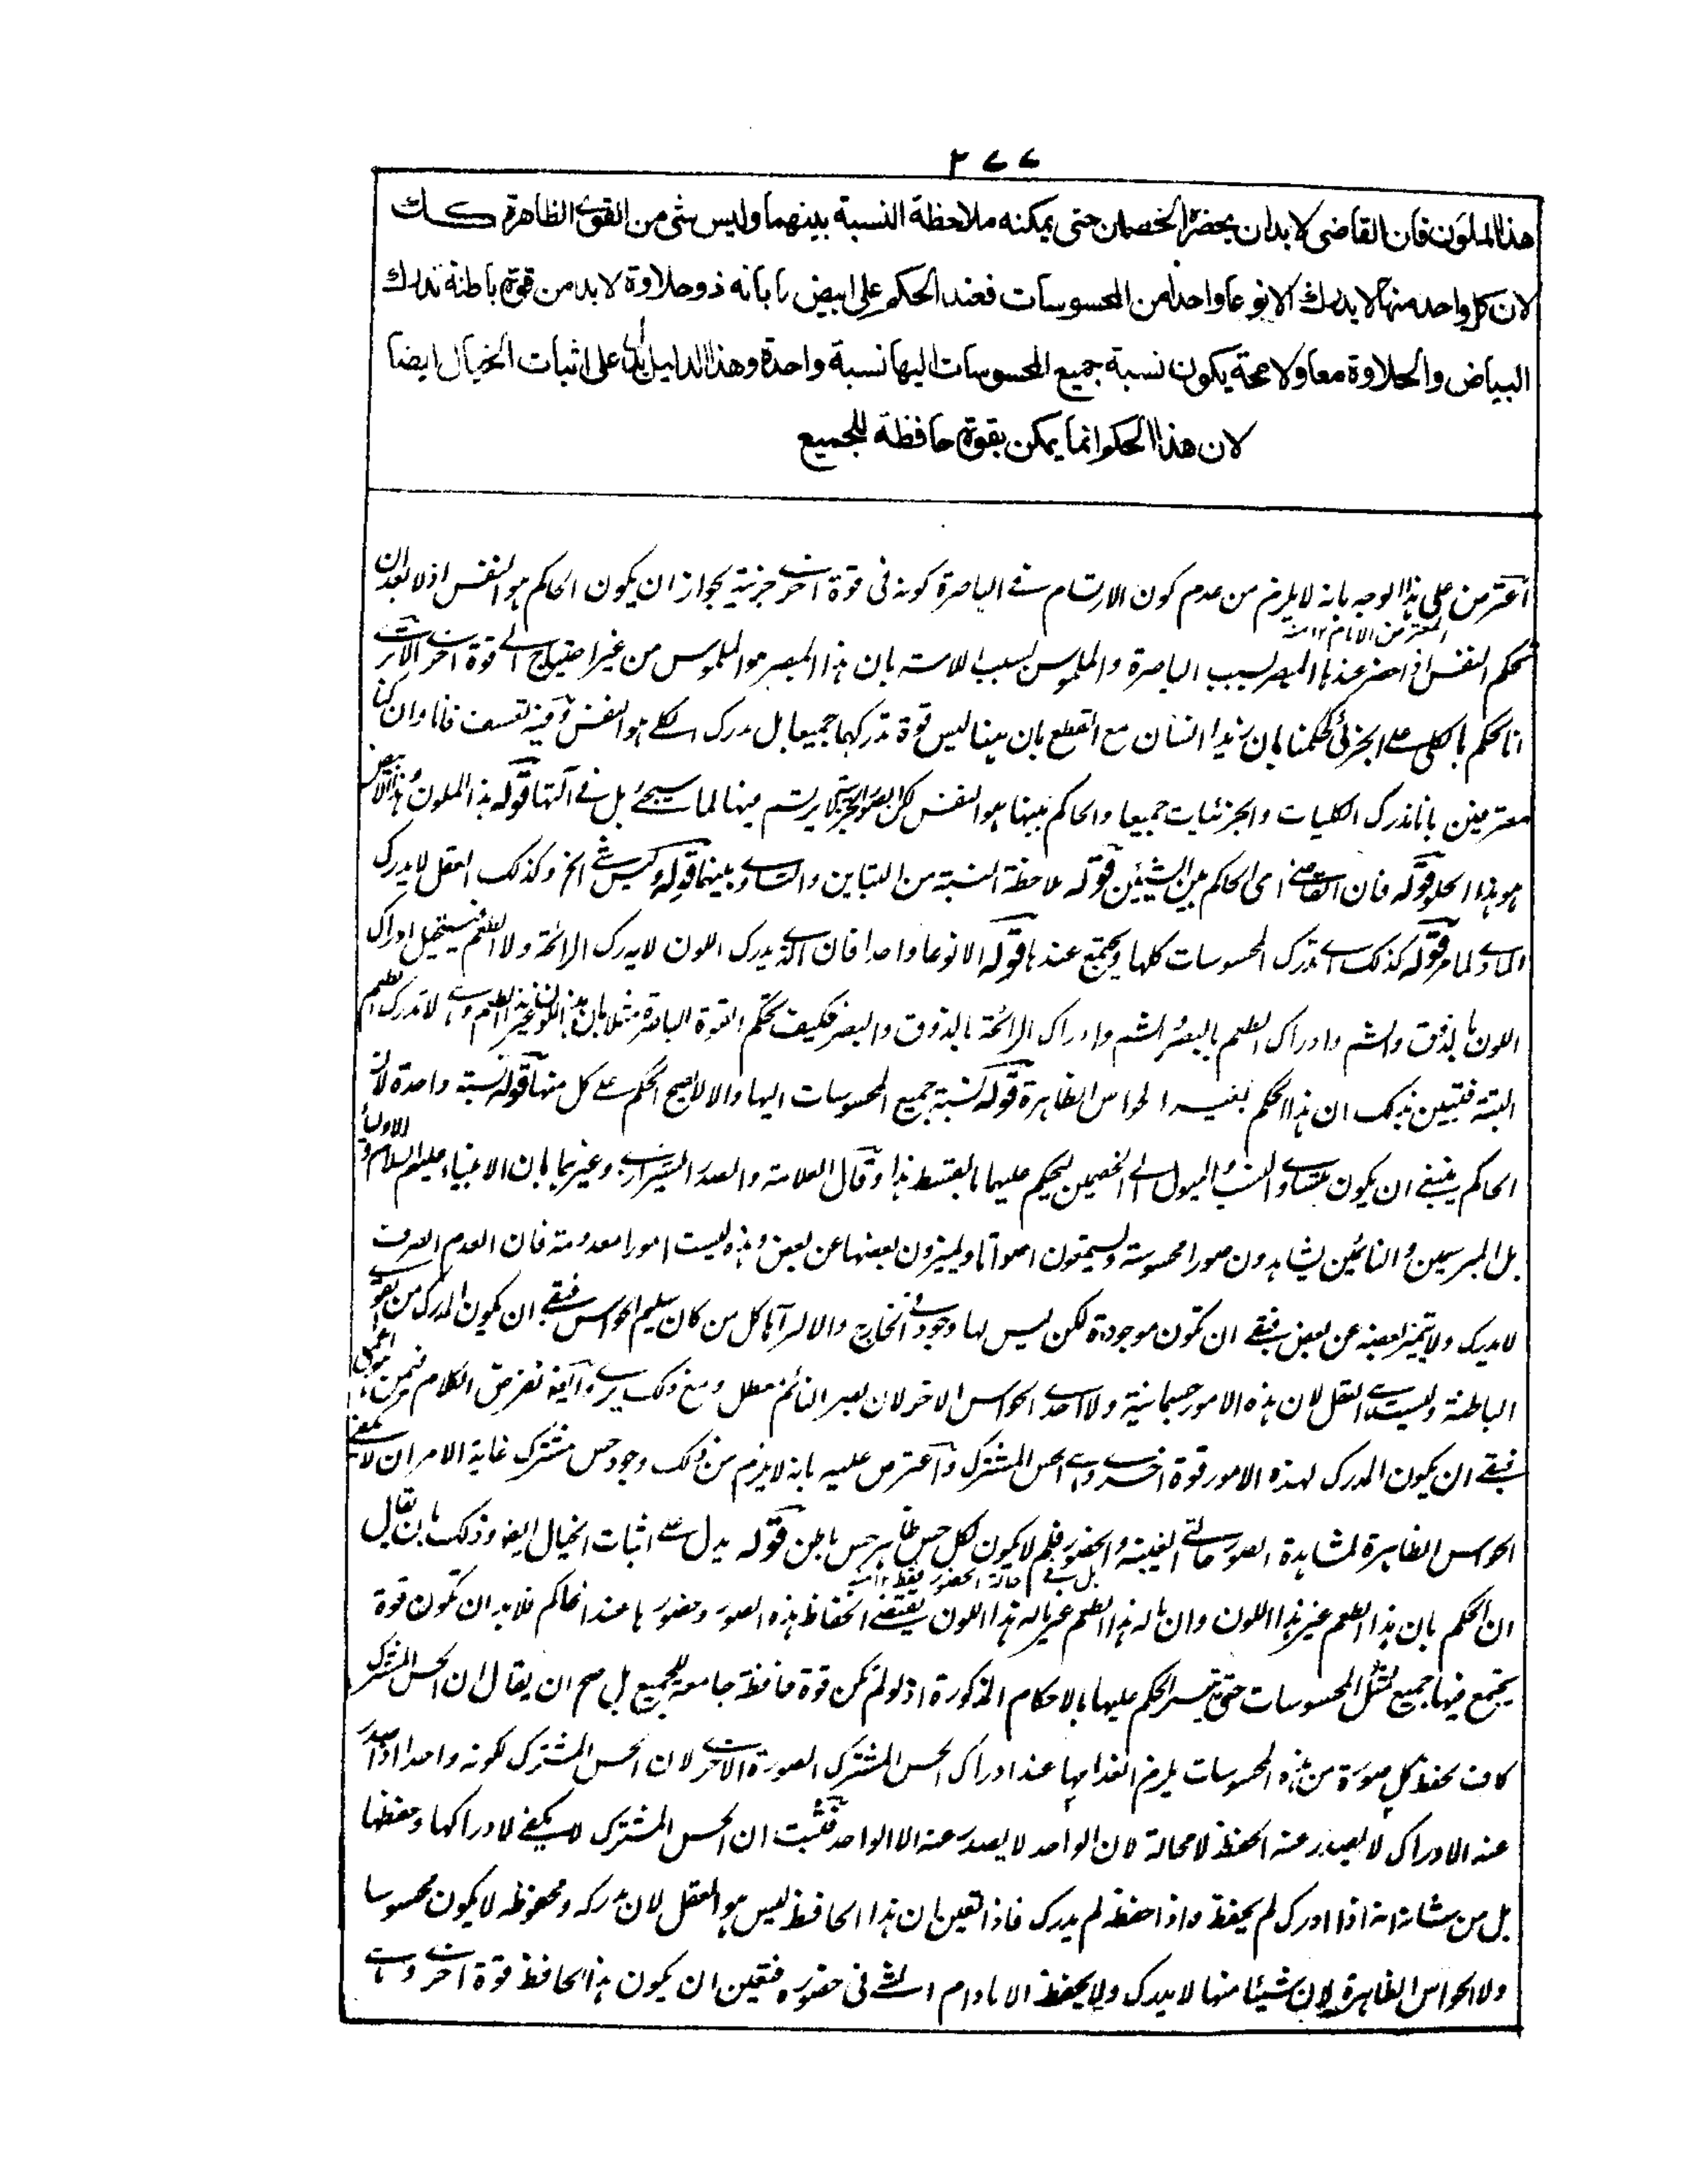 ٢٧٧
هذا الملون فان القاضي لا بد ان يحضره الخصمان حتى يمكنه ملاحظة النسبة بينهما وليس شئ من القوى الظاهرة كك
لان كل واحد منها لا يدرك الا نوعا واحدا من المحسوسات فعند الحكم على ابيض ما بانه ذو حلاوة لا بد من قوة باطنة تدرك
البياض والحلاوة معا ولا محة يكون نسبة جميع المحسوسات اليها نسبة واحدة وهذا الدليل يدل على اثبات الخيال ايضا
لان هذا الحكم انما يمكن بقوة حافظة للجميع
اعترض على هذا الوجه بانه لا يلزم من عدم كون الارتسام في الباصرة كونه في قوة اخرى جزئية لجواز ان يكون الحاكم هو النفس اذ لا بعد ان
المعترض الامام ١٢ منه
تحكم النفس اذا حضر عندها المبصر بسبب الباصرة والملموس بسبب اللامسة بان هذا المبصر هو الملموس من غير احتياج الى قوة اخرى الا ترى
انا نحكم بالكلي على الجزئي كحكمنا بان زيدا انسان مع القطع بان ليس قوة تدركهما جميعا بل مدرك الكلي هو النفس وفيه تعسف فانا وان كنا
معترفين بانا ندرك الكليات والجزئيات جميعا والحاكم بينها هو النفس لكن الصور الجزئية لا يرتسم فيها لما سيجئ بل في آلتها قوله هذا الملون هذا الابيض
هو هذا الحلو قوله فان القاضي اى الحاكم بين الشيئين قوله ملاحظة النسبة من التباين والتساوي بينهما قوله وليس شئ الخ وكذلك العقل لا يدرك
المادي لما مر قوله كذلك اى تدرك المحسوسات كلها ويجتمع عندها قوله الا نوعا واحدا فان الذي يدرك اللون لا يدرك الرائحة ولا الطعم فيستحيل ادراك
اللون بالذوق والشم وادراك الطعم بالبصر والشم وادراك الرائحة بالذوق والبصر فكيف تحكم القوة الباصرة مثلا بان هذا اللون غير هذا الطعم وهي لا تدرك الطعم
البتة فتبين بذلك ان هذا الحكم لغير الحواس الظاهرة قوله نسبة جميع المحسوسات اليها والا لا يصح الحكم على كل منها قوله نسبة واحدة لان
الحاكم ينبغي ان يكون متساوي النسبة والميول الى الخصمين ليحكم عليهما بالقسط هذا وقال العلامة والصدر الشيرازي وغيرهما بان الانبياء عليهم السلام والاولياء
بل المبرسمين والنائمين يشاهدون صورا محسوسة ويسمعون اصواتا ويميزون بعضها عن بعض وهذه ليست امورا معدومة فان العدم الصرف
لا يدرك ولا يتميز بعضه عن بعض فبقى ان تكون موجودة لكن ليس لها وجود في الخارج والا لرآها كل من كان سليم الحواس فبقى ان يكون المدرك من القوى
الباطنة وليست هي العقل لان هذه الامور جسمانية ولا احدى الحواس الاخر لان بصر النائم معطل ومع ذلك يرى وايضا نفرض الكلام فيمن هو اعمى
فبقى ان يكون المدرك لهذه الامور قوة اخرى وهي الحس المشترك واعترض عليه بانه لا يلزم من ذلك وجود حس مشترك غاية الامر ان لا يكفي
الحواس الظاهرة لمشاهدة الصور حالتي الغيبة والحضور فلم لا يكون لكل حس ظاهر حس باطن قوله يدل على اثبات الخيال ايضا وذلك بان يقال
بل في حالة الحضور فقط ١٢ منه
ان الحكم بان هذا الطعم غير هذا اللون وان ما له هذا الطعم غير ما له هذا اللون يقتضي انحفاظ هذه الصور وحضورها عند الحاكم فلا بد ان تكون قوة
يجتمع فيها جميع مثل المحسوسات حتى يتيسر الحكم عليها بالاحكام المذكورة اذ لو لم تكن قوة حافظة جامعة للجميع بل صح ان يقال ان الحس المشترك
كاف لحفظ كل صورة من هذه المحسوسات يلزم انعدامها عند ادراك الحس المشترك الصورة الاخرى لان الحس المشترك لكونه واحدا اذا صدر
عنه الادراك لا يصدر عنه الحفظ لا محالة لان الواحد لا يصدر عنه الا الواحد فثبت ان الحس المشترك لا يكفي لادراكها وحفظها
بل من شانه انه اذا ادرك لم يحفظ واذا حفظ لم يدرك فاذا تعين ان هذا الحافظ ليس هو العقل لان مدركه ومحفوظه لا يكون محسوسا
ولا الحواس الظاهرة لان شيئا منها لا يدرك ولا يحفظ الا ما دام الشئ في حضوره فتعين ان يكون هذا الحافظ قوة اخرى وهي